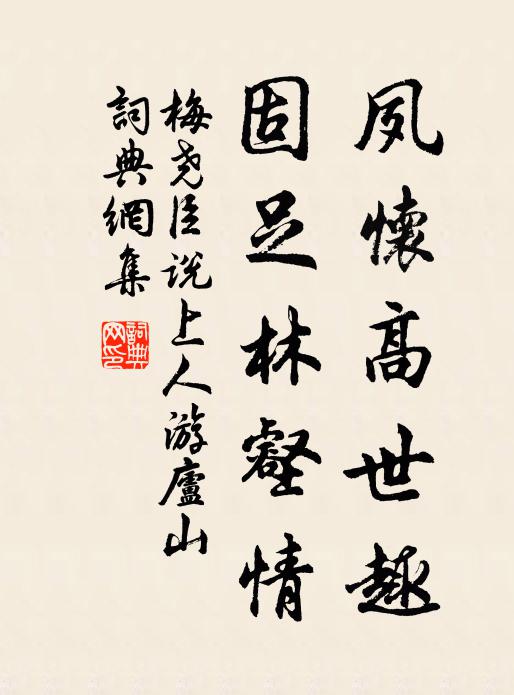 夙懷高世趣
固足林壑情
梅尧臣说上人游廬山
詞典網集
詞典网印